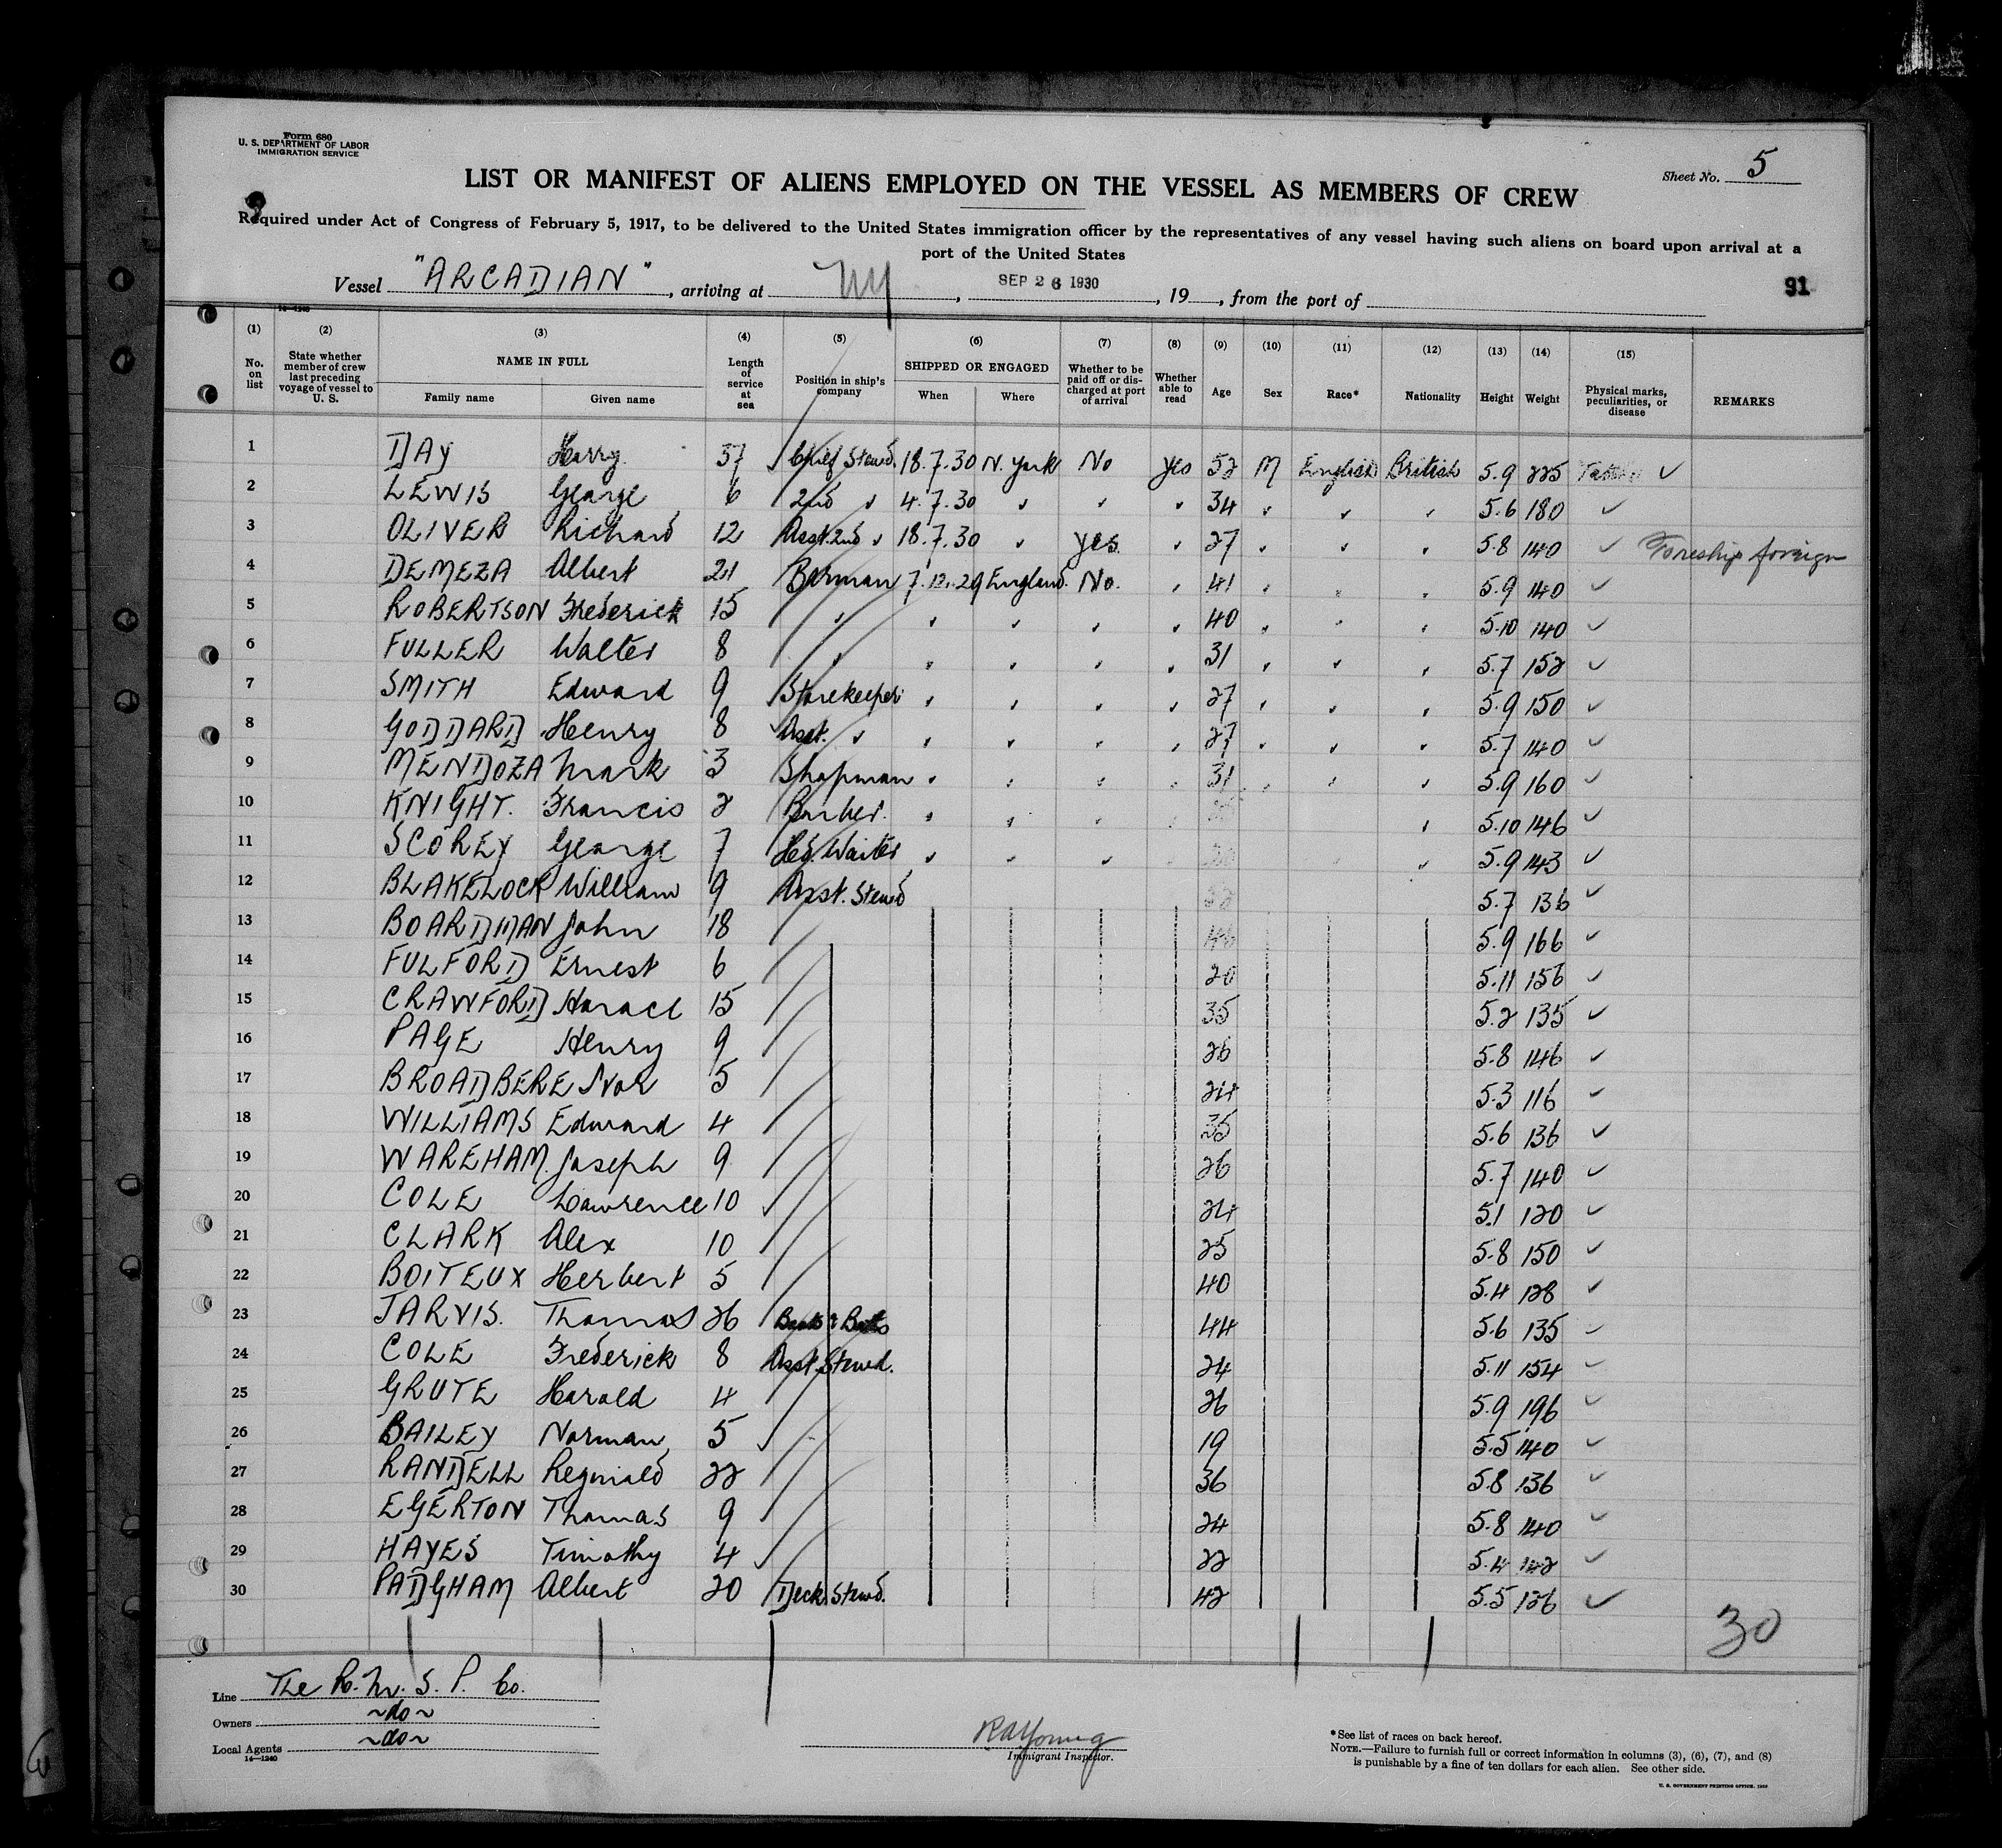 Form 680
U. S. DEPARTMENT OF LABOR
IMMIGRATION SERVICE
Sheet No. 5
LIST OR MANIFEST OF ALIENS EMPLOYED ON THE VESSEL AS MEMBERS OF CREW
Required under Act of Congress of February 5, 1917, to be delivered to the United States immigration officer by the representatives of any vessel having such aliens on board upon arrival at a
port of the United States
Vessel "ARCADIAN", arriving at NY, SEP 26 1930, 19 , from the port of
91
14—1240
(1) (2) (3) (4) (5) (6) (7) (8) (9) (10) (11) (12) (13) (14) (15)
No. on list State whether member of crew last preceding voyage of vessel to U. S. NAME IN FULL Length of service at sea Position in ship's company SHIPPED OR ENGAGED Whether to be paid off or discharged at port of arrival Whether able to read Age Sex Race* Nationality Height Weight Physical marks, peculiarities, or disease REMARKS
Family name Given name When Where
1 DAY Harry 37 Chief Stewd. 18.7.30 N. York No yes 52 M English British 5.9 225 ✓
2 LEWIS George 6 2nd ✓ 4.7.30 ✓ ✓ ✓ 34 ✓ ✓ ✓ 5.6 180 ✓
3 OLIVER Richard 12 Asst. 2nd ✓ 18.7.30 ✓ yes. ✓ 27 ✓ ✓ ✓ 5.8 140 ✓ foreign
4 DEMEZA Albert 21 Barman 7.12.29 England. No. ✓ 41 ✓ ✓ ✓ 5.9 140 ✓
5 ROBERTSON Frederick 15 ✓ ✓ ✓ ✓ ✓ 40 ✓ ✓ ✓ 5.10 140 ✓
6 FULLER Walter 8 ✓ ✓ ✓ ✓ ✓ 31 ✓ ✓ ✓ 5.7 152 ✓
7 SMITH Edward 9 Storekeeper ✓ ✓ ✓ ✓ 27 ✓ ✓ ✓ 5.9 150 ✓
8 GODDARD Henry 8 Asst. ✓ ✓ ✓ ✓ ✓ 27 ✓ ✓ ✓ 5.7 140 ✓
9 MENDOZA Mark 3 Shopman ✓ ✓ ✓ ✓ 31 ✓ ✓ ✓ 5.9 160 ✓
10 KNIGHT. Francis 2 Barber. ✓ ✓ ✓ ✓ 5.10 146 ✓
11 SCOREY George 7 Hd. Waiter ✓ ✓ ✓ ✓ 5.9 143 ✓
12 BLAKELOCK William 9 Asst. Stewd 5.7 136 ✓
13 BOARDMAN John 18 5.9 166 ✓
14 FULFORD Ernest 6 20 5.11 156 ✓
15 CRAWFORD Horace 15 35 5.2 135 ✓
16 PAGE Henry 9 26 5.8 146 ✓
17 BROADBERE Ivor 5 24 5.3 116 ✓
18 WILLIAMS Edward 4 35 5.6 136 ✓
19 WAREHAM. Joseph 9 26 5.7 140 ✓
20 COLE Lawrence 10 24 5.1 120 ✓
21 CLARK Alex 10 25 5.8 150 ✓
22 BOITEUX Herbert 5 40 5.4 128 ✓
23 JARVIS. Thomas 26 44 5.6 135 ✓
24 COLE Frederick 8 Asst. Stewd. 24 5.11 154 ✓
25 GRUTE Harold 4 26 5.9 196 ✓
26 BAILEY Norman 5 19 5.5 140 ✓
27 RANDELL Reginald 22 36 5.8 136 ✓
28 EGERTON Thomas 9 24 5.8 140 ✓
29 HAYES Timothy 4 22 5.4 142 ✓
30 PADGHAM Albert 20 Deck Stewd. 42 5.5 126 ✓
30
Line The R. M. S. P. Co.
Owners ~do~
Local Agents ~do~
14—1240
RAYoung
Immigrant Inspector.
*See list of races on back hereof.
NOTE.—Failure to furnish full or correct information in columns (3), (6), (7), and (8)
is punishable by a fine of ten dollars for each alien. See other side.